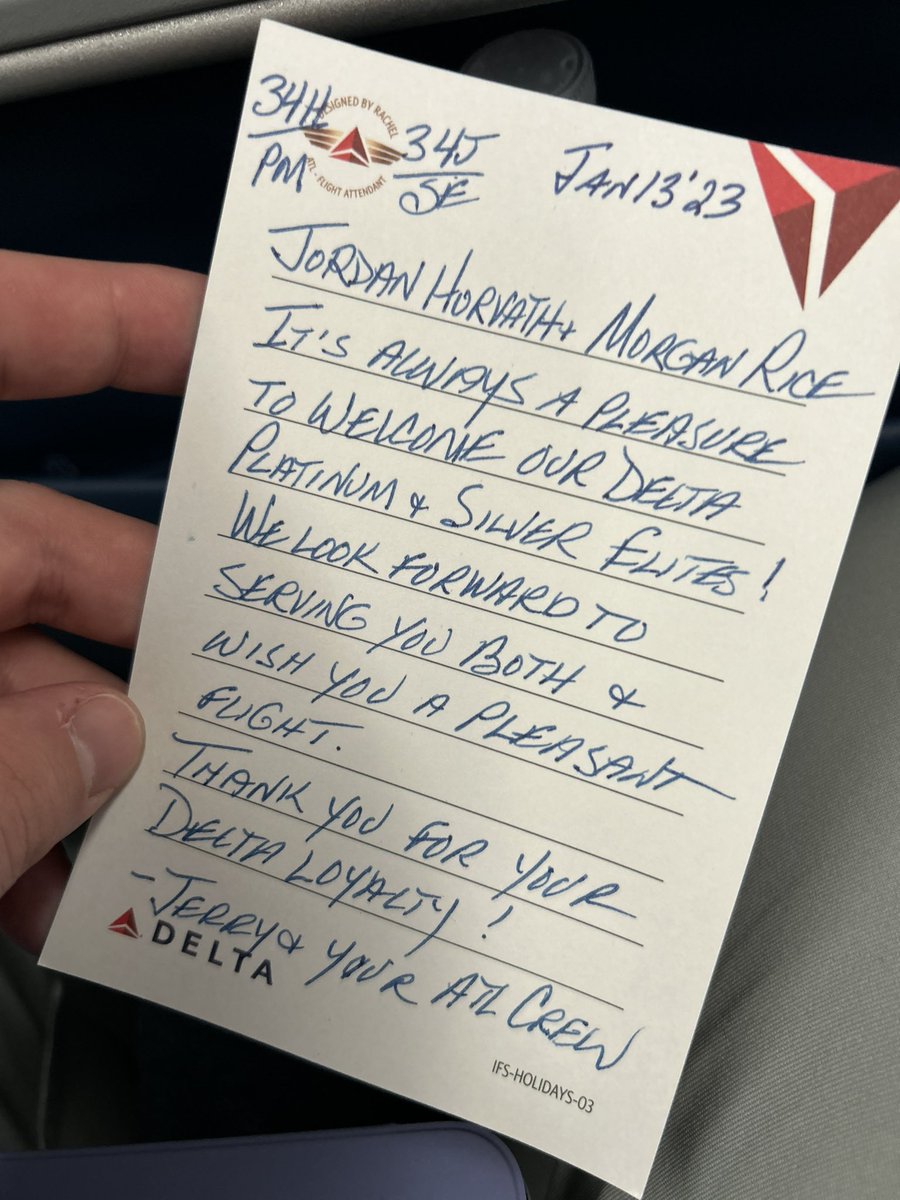 34H
PM
DESIGNED BY RACHEL
ATL - FLIGHT ATTENDANT
34J
SE
JAN 13'23
JORDAN HORVATH & MORGAN RICE
IT'S ALWAYS A PLEASURE
TO WELCOME OUR DELTA
PLATINUM & SILVER ELITES!
WE LOOK FORWARD TO
SERVING YOU BOTH &
WISH YOU A PLEASANT
FLIGHT.
THANK YOU FOR YOUR
DELTA LOYALTY!
-JERRY & YOUR ATL CREW
DELTA
IFS-HOLIDAYS-03